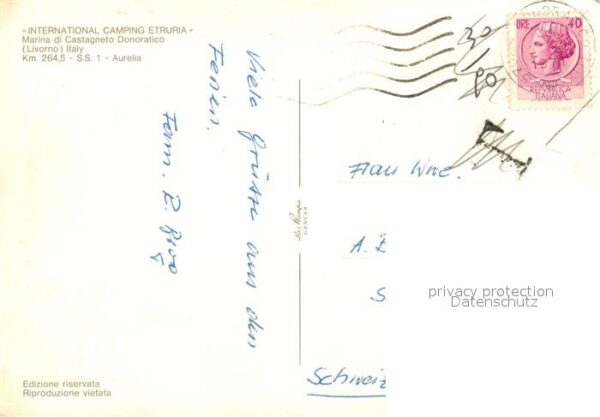 "INTERNATIONAL CAMPING ETRURIA"
Marina di Castagneto Donoratico
(Livorno) Italy
Km. 264,5 - S.S. 1 - Aurelia
Viele Grüsse aus den
Ferien.
Fam. E.
LIRE 40
REPVBBLICA
ITALIANA
30
80
Frau Wwe.
A.
S
Schweiz
La Stampa
GENOVA
privacy protection
Datenschutz
Edizione riservata
Riproduzione vietata